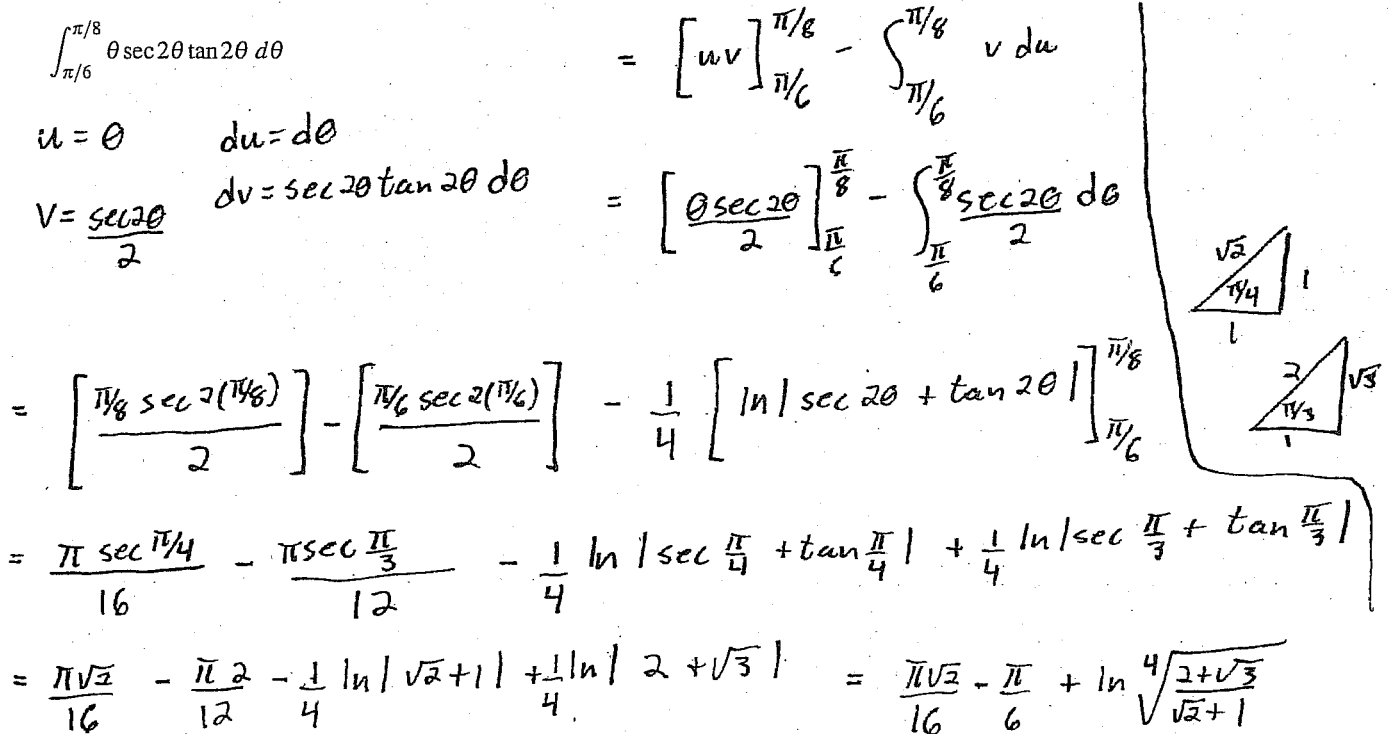 ∫_{π/6}^{π/8} θ sec 2θ tan 2θ dθ
= [uv]_{π/6}^{π/8} - ∫_{π/6}^{π/8} v du
u = θ du = dθ
v = sec2θ/2 dv = sec 2θ tan 2θ dθ
= [θ sec 2θ/2]_{π/6}^{π/8} - ∫_{π/6}^{π/8} sec2θ/2 dθ
√2 π/4 1 1
2 π/3 √3 1
= [π/8 sec 2(π/8)/2] - [π/6 sec 2(π/6)/2] - 1/4 [ln | sec 2θ + tan 2θ |]_{π/6}^{π/8}
= π sec π/4/16 - π sec π/3/12 - 1/4 ln | sec π/4 + tan π/4 | + 1/4 ln | sec π/3 + tan π/3 |
= π√2/16 - π 2/12 - 1/4 ln | √2 + 1 | + 1/4 ln | 2 + √3 | = π√2/16 - π/6 + ln ⁴√((2+√3)/(√2+1))